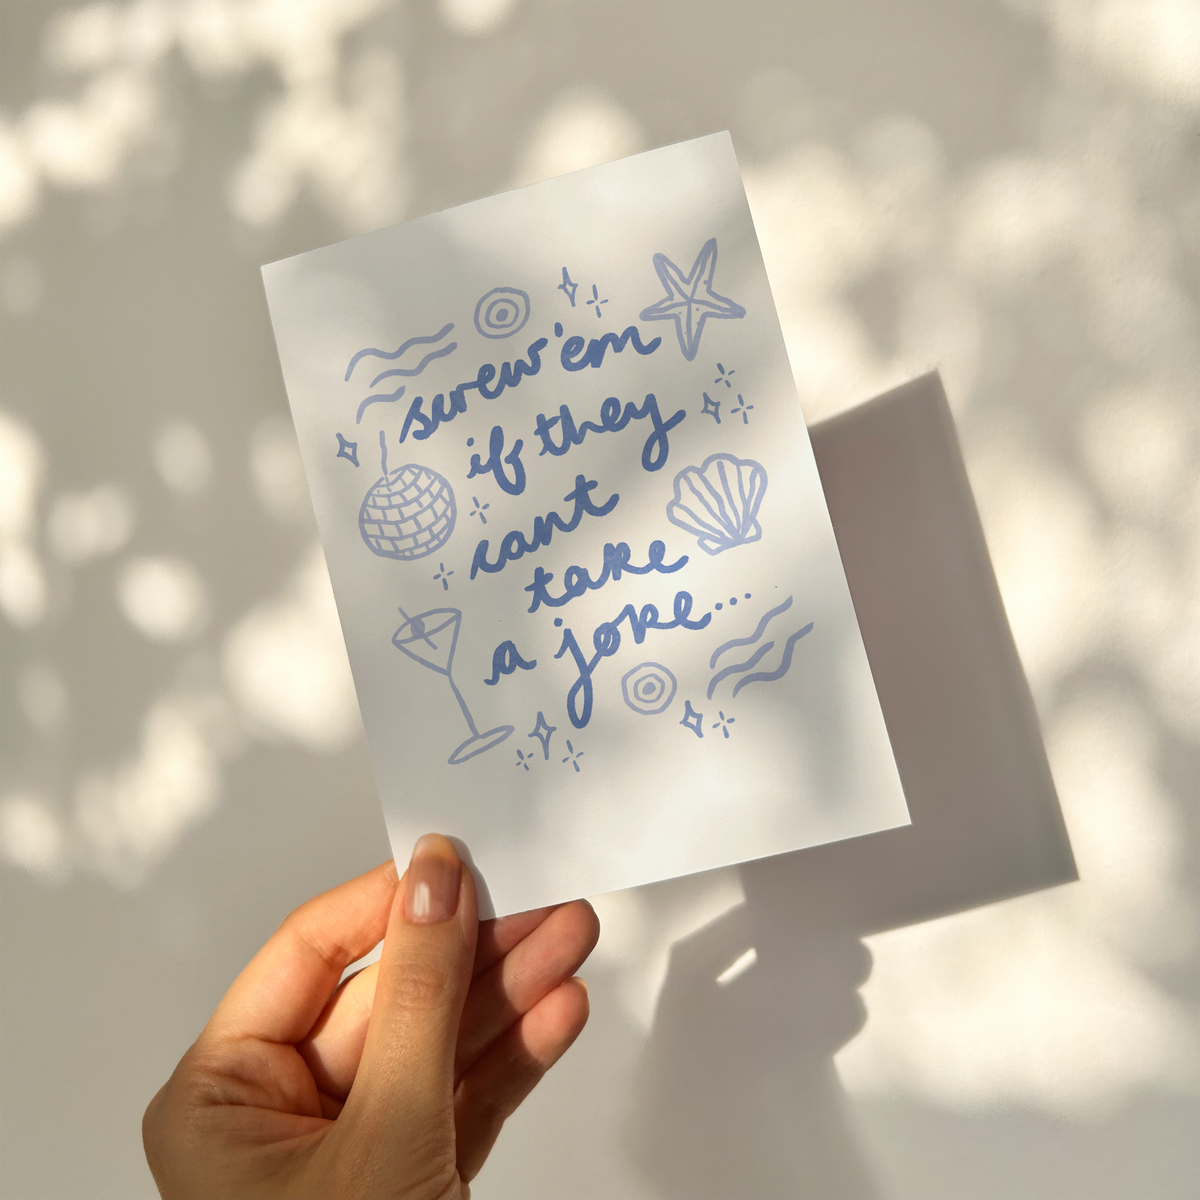 screw'em
if they
cant
take
a joke...